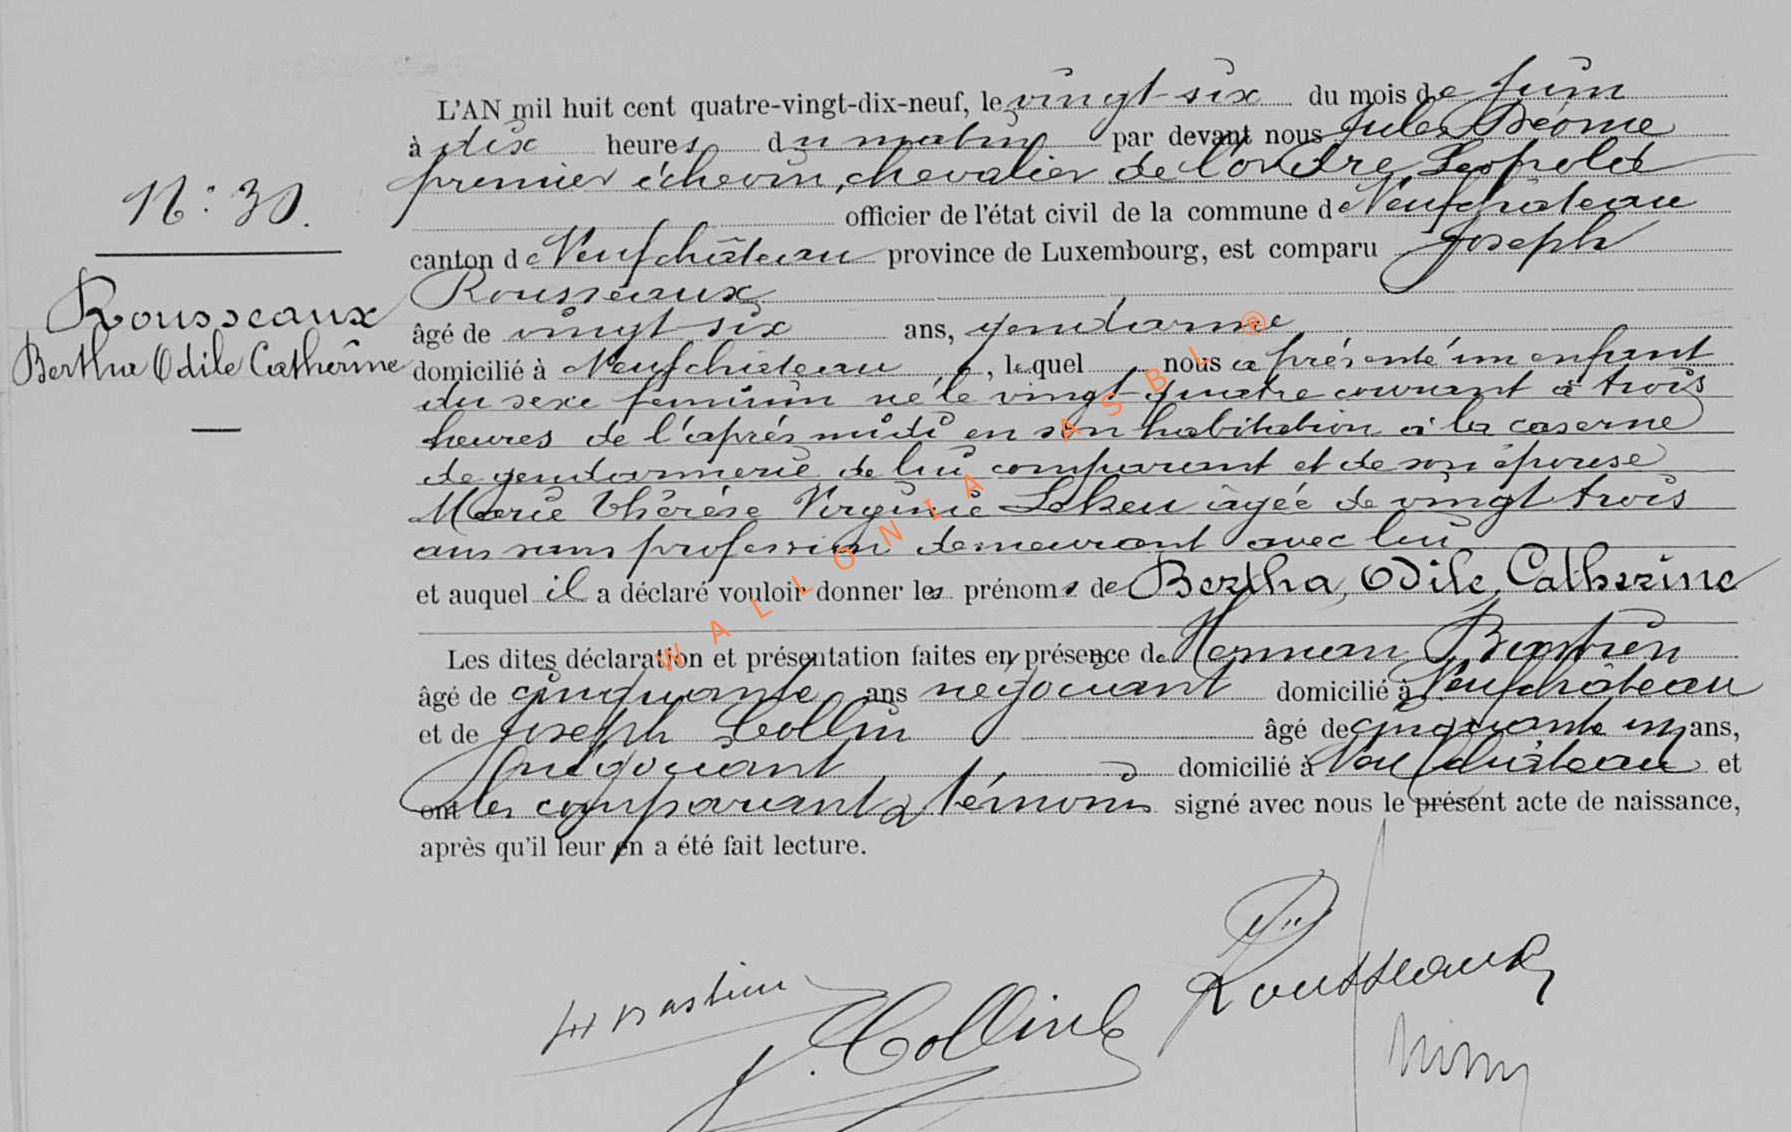 N: 30.
Rousseaux
Bertha Odile Catherine
L'AN mil huit cent quatre-vingt-dix-neuf, le vingt-six du mois de Juin
à dix heures du matin par devant nous Jules
premier échevin, chevalier de l'ordre Léopold
officier de l'état civil de la commune de Neufchâteau
canton de Neufchâteau province de Luxembourg, est comparu Joseph
Rousseaux
âgé de vingt six ans, gendarme
domicilié à Neufchâteau, lequel nous a présenté un enfant
du sexe féminin né le vingt-quatre courant à trois
heures de l'après midi en son habitation à la caserne
de gendarmerie de lui comparant et de son épouse
Marie Thérèse Virginie Lekeu âgée de vingt trois
ans sans profession demeurant avec lui
et auquel il a déclaré vouloir donner les prénoms de Bertha, Odile, Catherine
Les dites déclaration et présentation faites en présence de Herman Bastien
âgé de cinquante ans négociant domicilié à Neufchâteau
et de Joseph Collin âgé de cinquante un ans,
négociant domicilié à Neufchâteau et
ont les comparant & témoins signé avec nous le présent acte de naissance,
après qu'il leur en a été fait lecture.
H Bastien
J. Collin
Rousseaux
WALLONIA ASBL ®